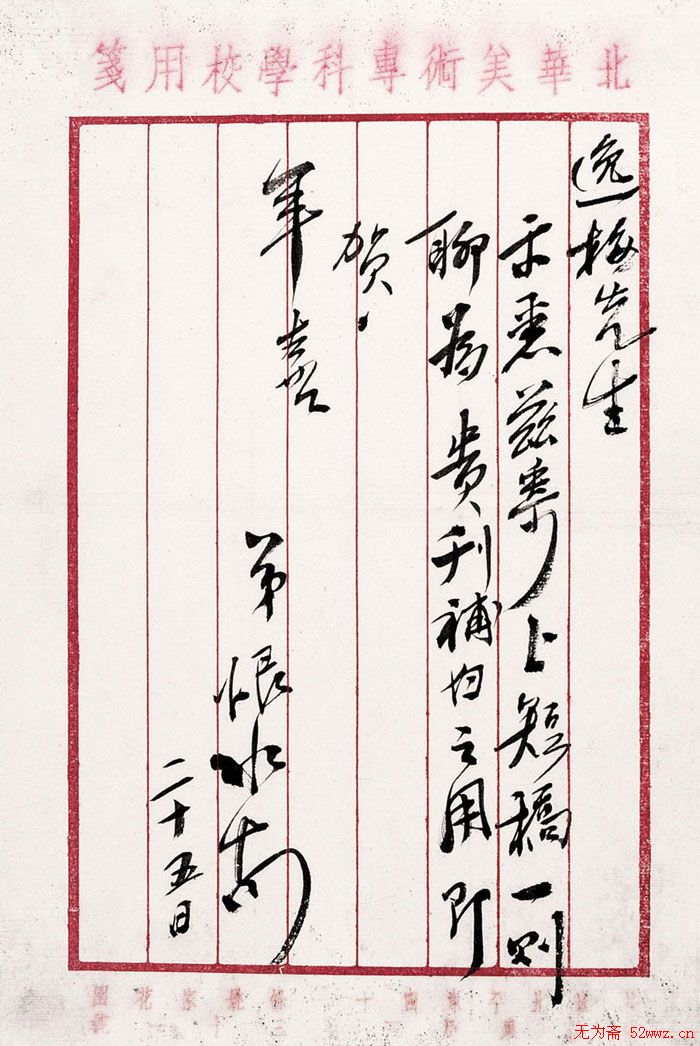 北華美術專科學校用箋
逸梅先生
示悉茲寄上短稿一則
聊為貴刊補白之用即
賀
年喜
弟恨水
二十五日
无为斋 52wwz.cn